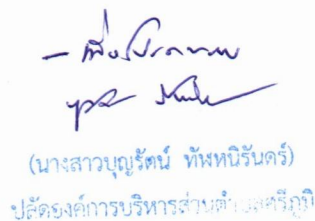 - เพื่อโปรดทราบ
(นางสาวบุญรัตน์ ทัพหนิรันดร์)
ปลัดองค์การบริหารส่วนตำบลศรีภูมิ